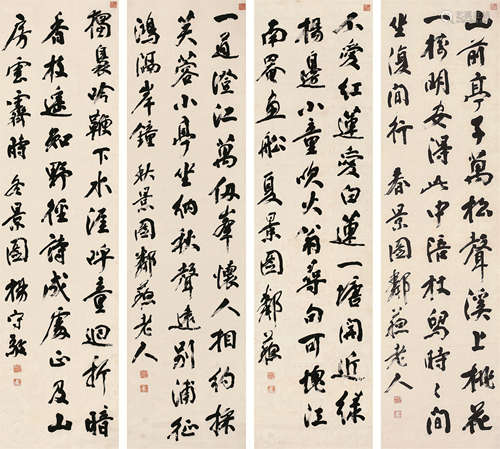 山前亭子萬松聲溪上桃花
一樹明安得此中陪杖舄時〻間
坐復間行 春景圖鄰蘇老人
不愛紅蓮愛白蓮一塘開近緑
楊邊小童吹火翁尋句可愧江
南罨畫船 夏景圖 鄰蘇
一道澄江萬仞峯懷人相約採
芙蓉小亭坐納秋聲遠別浦征
鴻隔岸鐘 秋景圖鄰蘇老人
獨裊吟鞭下水涯呼童迴折暗
香枝遥知野徑詩成處正及山
房雲霽時 冬景圖 楊守敬